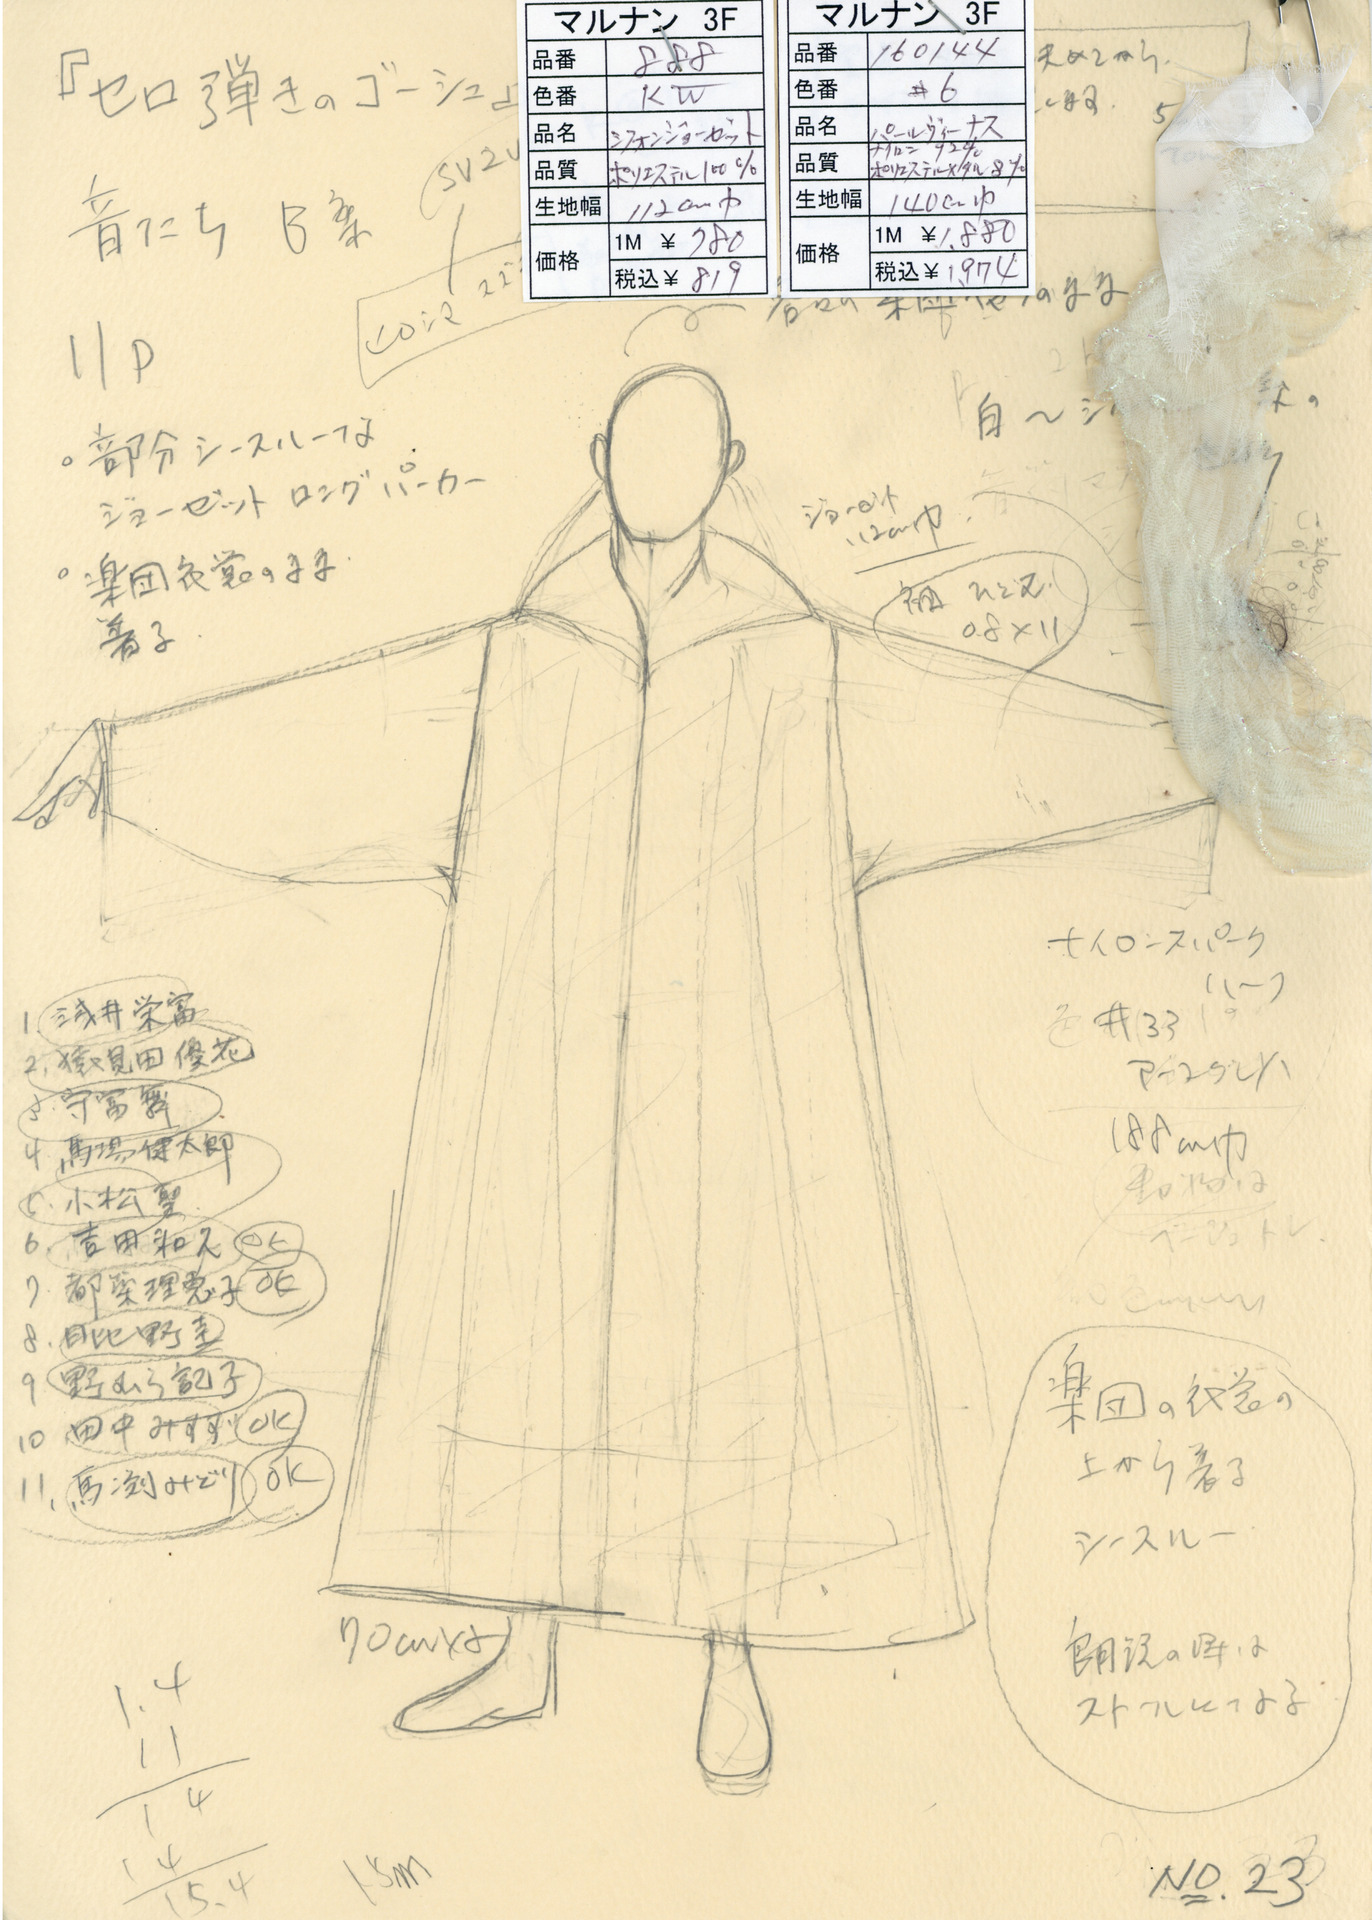 『セロ弾きのゴーシュ』
音たち B案
11P
マルナン 3F
品番 888
色番 KW
品名 シフォンジョーゼット
品質 ポリエステル100%
生地幅 112cm巾
価格 1M ¥ 780
税込¥ 819
マルナン 3F
品番 160144
色番 #6
品名 パールヴィーナス
品質 ナイロン 92%
ポリエステルメタル 8%
生地幅 140cm巾
価格 1M ¥ 1,880
税込¥ 1974
のまま
。部分シースルーな
ジョーゼット ロングパーカー
。楽団衣裳のまま
着る
ジョーゼット
112cm巾
袖
0.8×11
ナイロンスパーク
ハーフ
色 #33
188cm巾
動物は
1 浅井栄富
2. 猿見田優花
3. 守富舞
4. 馬場健太郎
5. 小松聖
6. 吉田和久 OK
7. 都築理恵子 OK
8. 日比野圭
9 野々山記子
10 田中みすず OK
11. 馬渕みどり OK
楽団の衣裳の
上から着る
シースルー
朗読の時は
ストールになる
70cm×
1.4
11
1 4
1 4
15.4
15m
NO. 23